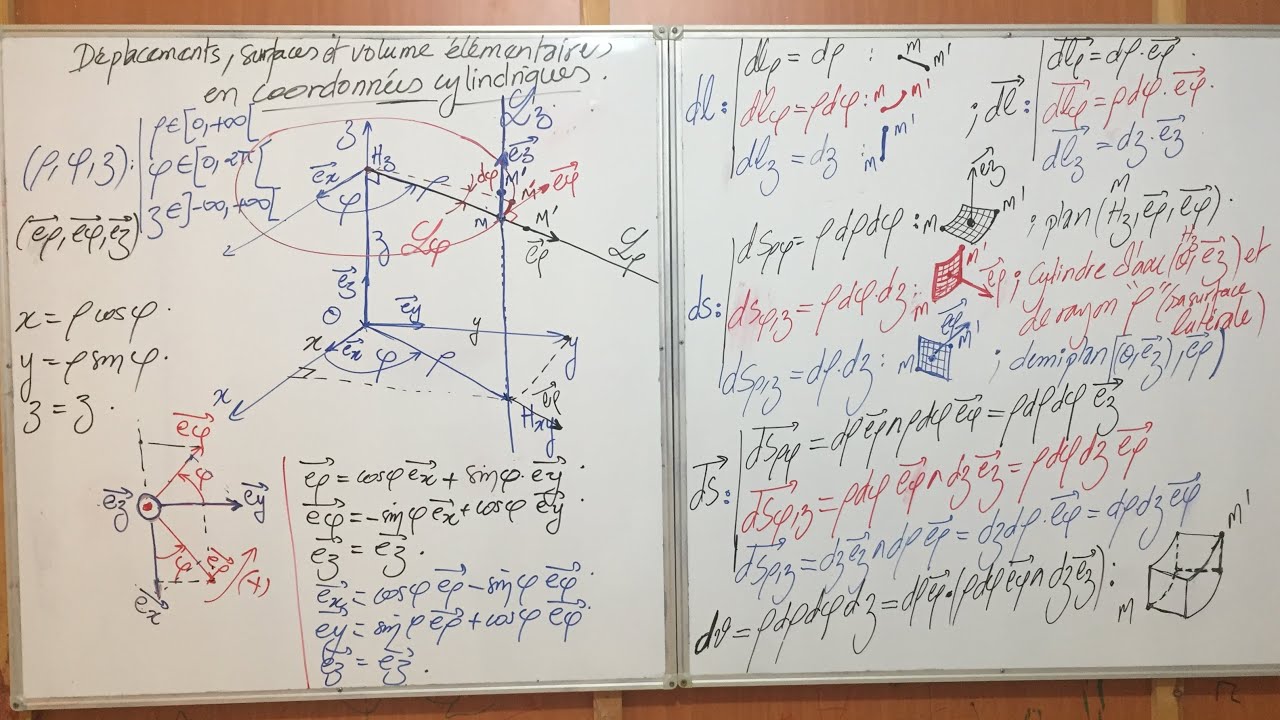 Déplacements, surfaces et volume élémentaires
en coordonnées cylindriques.
(ρ, φ, z): | ρ ∈ [0, +∞[
φ ∈ [0, 2π[
z ∈ ]-∞, +∞[
(eρ⃗, eφ⃗, ez⃗)
x = ρ cosφ.
y = ρ sinφ.
z = z.
z
Hz
ex⃗
φ
ρ
dφ
ℒz
ez⃗
M'
M'
eφ⃗
M
M'
eρ⃗
ℒφ
ℒρ
z
ez⃗
O
ey⃗
y
y
x
ex⃗
φ
ρ
x
eρ⃗
Hxy
eφ⃗
φ
ez⃗
ey⃗
φ
eρ⃗
(+)
ex⃗
eρ⃗ = cosφ ex⃗ + sinφ. ey⃗
eφ⃗ = -sinφ ex⃗ + cosφ ey⃗
ez⃗ = ez⃗.
ex⃗ = cosφ eρ⃗ - sinφ eφ⃗.
ey⃗ = sinφ eρ⃗ + cosφ eφ⃗.
ez⃗ = ez⃗.
dl: | dlρ = dρ : M M'
dlφ = ρdφ: M M'
dlz = dz : M M'
; dl⃗: | dlρ⃗ = dρ.eρ⃗.
dlφ⃗ = ρdφ.eφ⃗.
dlz⃗ = dz.ez⃗
ds: | dsρφ = ρdρdφ : M M' ez⃗ ; plan (Hz, eρ⃗, eφ⃗)
M
dsφ,z = ρdφ.dz: M M' eρ⃗ ; cylindre d'axe (O, ez⃗) et
Hz
de rayon "ρ" (sa surface
latérale)
dsρ,z = dρ.dz: M M' eφ⃗ ; demi plan [(O, ez⃗), eρ⃗)
dS⃗: | dSρφ⃗ = dρ eρ⃗ ∧ ρdφ eφ⃗ = ρdρdφ ez⃗
dSφ,z⃗ = ρdφ eφ⃗ ∧ dz ez⃗ = ρdφ dz eρ⃗
dSρ,z⃗ = dz ez⃗ ∧ dρ eρ⃗ = dz dρ. eφ⃗ = dρ dz eφ⃗
dϑ = ρdρdφdz = dρ eρ⃗.(ρdφ eφ⃗ ∧ dz ez⃗): M M'